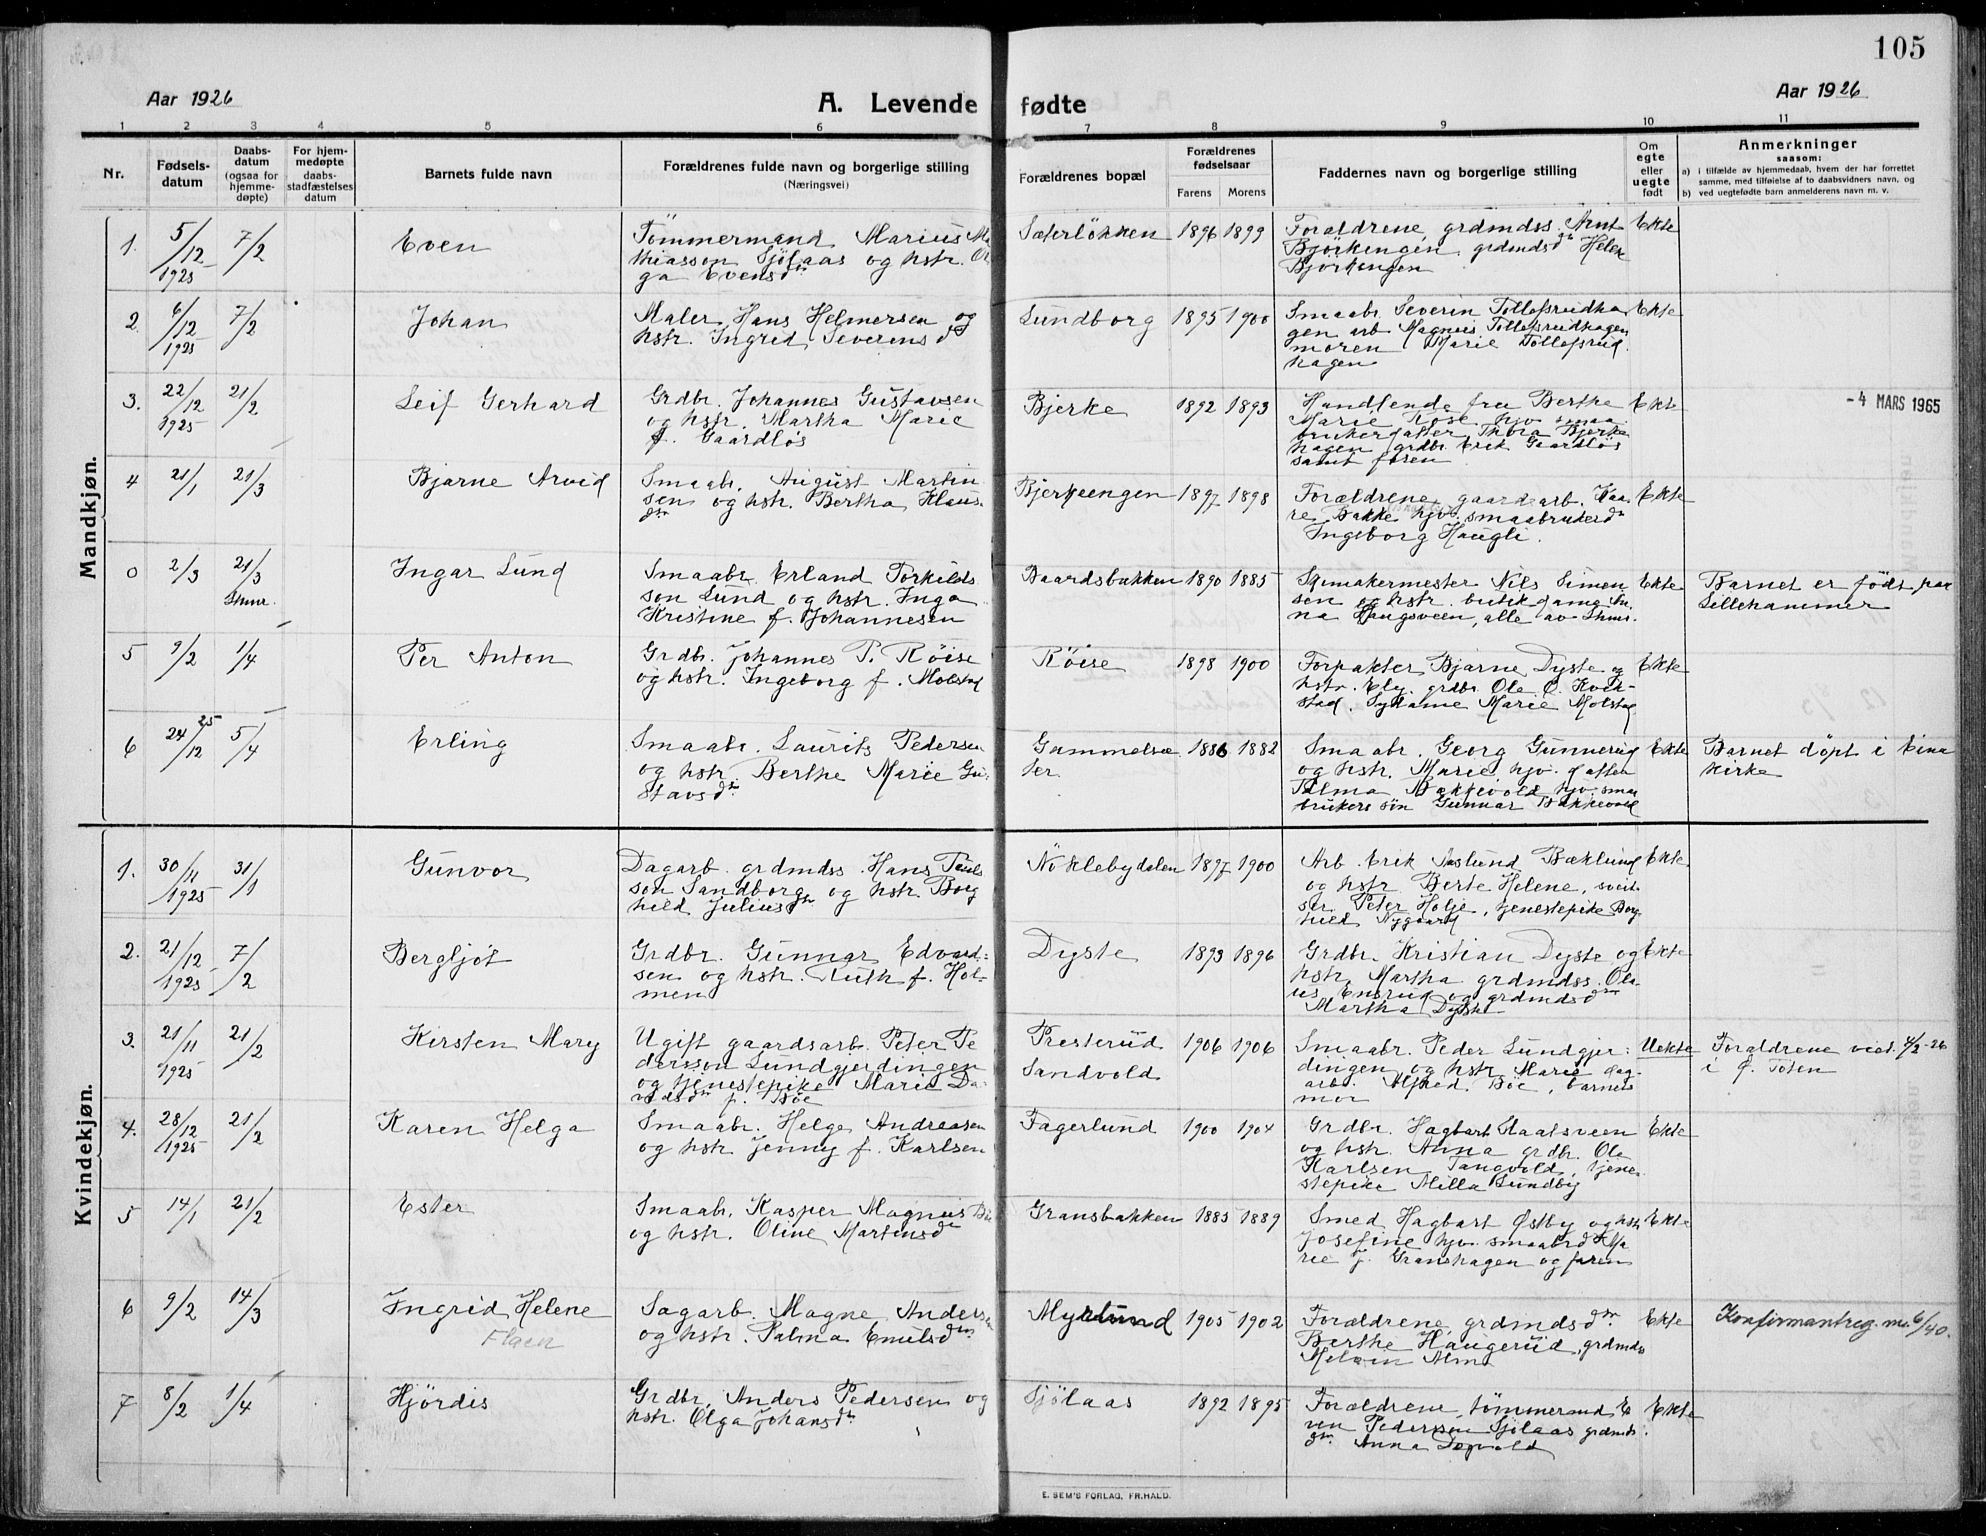 105
Aar 1926
A. Levende fødte
Aar 1926
1 2 3 4 5 6 7 8 9 10 11
Nr.
Fødsels-
datum
Daabs-
datum
(ogsaa for
hjemme-
døpte)
For hjem-
medøpte
daabs-
stadfæstelses
datum
Barnets fulde navn
Forældrenes fulde navn og borgerlige stilling
(Næringsvei)
Forældrenes bopæl
Forældrenes
fødselsaar
Farens Morens
Faddernes navn og borgerlige stilling
Om
egte
eller
uegte
født
Anmerkninger
saasom:
a) i tilfælde av hjemmedaab, hvem der har forrettet
samme, med tilføielse af to daabsvidners navn, og
b) ved uegtefødte barn anmelderens navn m. v.
Mandkjøn.
1. 5/12 1925 7/2 Even
Tömmermand Marius Ma
thiasson Sjölaas og hstr. Ol
ga Evensdtr
Sæterløkken 1896 1899
Foraldrene grdmdss. Arnt
Björkengen grdmdsdtr Helen
Bjorkengen
Ekte
2. 6/12 1925 7/2 Johan
Maler Hans Helmersen og
hstr. Ingrid Severensdtr
Lundborg 1895 1900
Smaabr. Severin Tollefsrudha
gen arb Magnus Tollefsrudhagen
moren Marie Tollefsrud
hagen
Ekte
3. 22/12 1925 21/2 Leif Gerhard
Grdbr. Johannes Gustavsen
og hstr. Martha Marie
f. Gaardløs
Bjerke 1892 1893
Handlende fru Berthe
Marie Rose hjv. smaa
brukerdatter Thora Bjerke
hagen grdbr. Erik Gaardløs
samt faren
Ekte
- 4 MARS 1965
4 21/1 21/3 Bjarne Arvid
Smaabr. August Martin
sen og hstr. Bertha Klaus-
dtr
Bjerkeengen 1897 1898
Forældrene, gaardsarb. Kaa
re Bakke hjv. smaabrukerdtr
Ingeborg Haugli.
Ekte
0 2/3 21/3 Lhmr. Ingar Lund
Smaabr. Erland Torkilds
son Lund og hstr. Inga
Kristine f. Johannesen
Baardsbakken 1890 1885
Skomakermester Nils Simen
sen og hstr. butikdame An-
na Haugsveen, alle av Lhmr.
Ekte
Barnet er født paa
Lillehammer
5 9/2 1/4 Per Anton
Grdbr. Johannes P. Røise
og hstr. Ingeborg f. Molstad
Røise 1898 1900
Forpakter Bjarne Dyste og
hstr. Ely. grdbr. Ole O. Kvik-
stad, Sydame Marie Molstad
Ekte
6 24/12 25 5/4 Erling
Smaabr. Laurits Pedersen
og hstr. Berthe Marie Gu-
stavsdtr
Gammelsæ
ter 1886 1882
Smaabr. Georg Gunnerud
og hstr. Marie, hjv. datter
Thelma Bakkevold hjv. smaa
brukers søn Gunnar Bakkevold
Ekte
Barnet døpt i Eina
kirke
Kvindekjøn.
1. 30/11 1925 31/1 Gunvor
Dagarb. grdmdss. Hans Pauls
son Sandborg og hstr. Borg
hild Juliusdtr
Nöklebydalen 1897 1900
Arb. Erik Aslund Bæklund
og hstr. Berte Helene, sveit-
ser Peter Holje, tjenestepike Borg
hild Nygaard
Ekte
2. 21/12 1925 7/2 Bergljot
Grdbr. Gunnar Edvard-
sen og hstr. Ruth f. Hol-
men
Dyste 1893 1896
Grdbr. Kristian Dyste og
hstr. Martha grdmdss. Ola
us Ensrud og grdmdsdtr
Martha Dyste
Ekte
3. 21/11 1925 21/2 Kirsten Mary
Ugift gaardsarb. Peter Pe
dersson Lundgjerdingen
og tjenestepike Marie Da-
vidsdtr f. Bøe
Presterud
Sandvold 1906 1906
Smaabr. Peder Lundgjer-
dingen og hstr. Marie dag-
arb. Alfred Bøe, barnets
mor
Uekte
Foraldrene viet 4/2-26
i Ø. Toten
4. 28/12 1925 21/2 Karen Helga
Smaabr. Helge Andreasen
og hstr Jenny f. Karlsen
Fagerlund 1900 1904
Grdbr. Hagbart Staalsveen
og hstr. Anna grdbr. Ole
Karlsen Tangvold, tjene-
stepike Milla Lundby
Ekte
5 14/1 21/2 Ester
Smaabr. Kasper Magnus
og hstr. Oline Martensdtr
Gransbakken 1885 1889
Smed Hagbart Østby og hstr
Josefine hjv. smaabrdtr Ma
rie f. Granshagen og faren
Ekte
6 9/2 14/3 Ingrid Helene
Flaen
Sagarb. Magne Anders
og hstr. Palma Emilsdtr
Myrlund 1905 1902
Forældrene, grdmdsdtr
Berthe Haugerud, grdmds
Melvin Alm
Ekte
Konfirmantreg. nr. 6/40.
7 8/2 1/4 Hjördis
Grdbr. Anders Pedersen og
hstr. Olga Johansdtr
Sjölaas 1892 1895
Forældrene, tømmermand E
ven Pederssen Sjølaas grdmds
dtr. Anna Dopvold
Ekte
E. SEM'S FORLAG, FR.HALD.